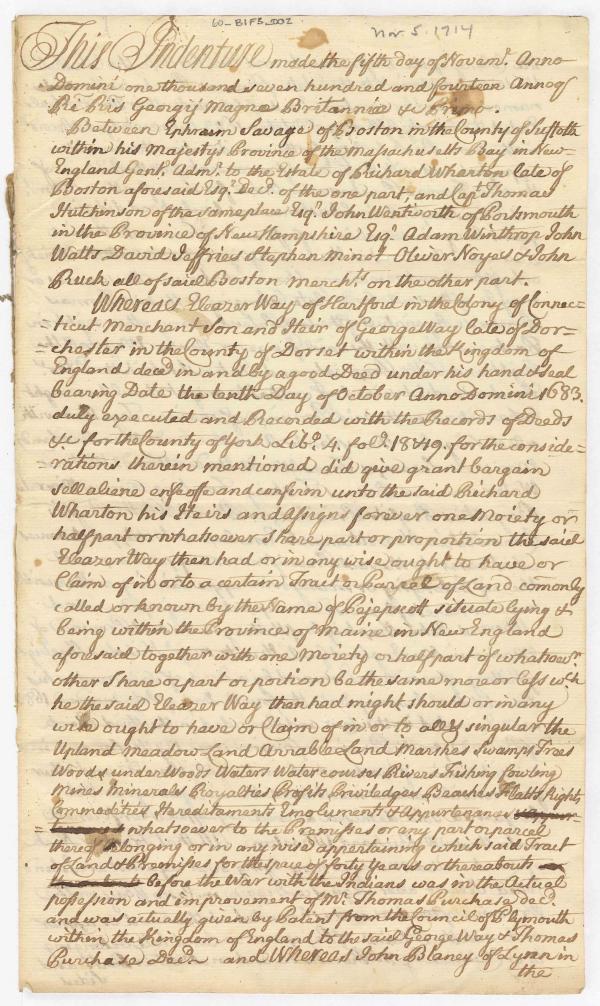 60-B1F3_002
Nov 5. 1714
This Indenture made the fifth day of Novemr. Anno
Domini one thousand seven hundred and fourteen Annoq
Rs. Ris Georgij Magnæ Britanniæ &c Primo.
Between Ephraim Savage of Boston in the County of Suffolk
within his Majestys Province of the Massachusetts Bay in New-
England Gent. Admr. to the Estate of Richard Wharton late of
Boston aforesaid Esqr. Decd. of the one part, and Capt. Thomas
Hutchinson of the same place Esqr. John Wentworth of Portsmouth
in the Province of New Hampshire Esqr. Adam Winthrop John
Watts David Jeffries Stephen Minot Oliver Noyes & John
Ruck all of said Boston merchts. on the other part.
Whereas Eleazer Way of Hartford in the Colony of Connec=
=ticut Merchant Son and Heir of George Way late of Dor=
=chester in the County of Dorset within the Kingdom of
England decd. in and by a good Deed under his hand & seal
bearing Date the tenth Day of October Anno Domini 1683.
duly executed and Recorded with the Records of Deeds
&c. for the County of York Libo. 4. folo. 18 & 19. for the conside=
=rations therein mentioned did give grant bargain
sell aliene enfeoffe and confirm unto the said Richard
Wharton his Heirs and Assigns forever one Moiety or
half part or whatsoever share part or proportion the said
Eleazer Way then had or in any wise ought to have or
Claim of in or to a certain Tract or parcel of Land comonly
called or known by the Name of Pejepscott situate lying &
being within the Province of Maine in New England
aforesaid together with one Moiety or half part of whatsoevr.
other Share or part or portion be the same more or less wch
he the said Eleazer Way then had might should or in any
wise ought to have or Claim of in or to all & singular the
Upland Meadow Land Arrable Land Marshes Swamps Trees
Woods under Woods Waters Water courses Rivers Fishing fowling
Mines Minerals Royalties Profits Priviledges Beaches Flatts Rights
Commodities Hereditaments Emoluments & Appurtenances
whatsoever to the Premisses or any part or parcel
thereof belonging or in any wise appertaining which said Tract
of Land & Premisses for the space of forty Years or thereabouts
before the War with the Indians was in the Actual
possession and improvement of Mr. Thomas Purchase decd.
and was actually given by Patent from the Council of Plymouth
within the Kingdom of England to the said George Way & Thomas
Purchase Decd. and Whereas John Blaney of Lynn in
the